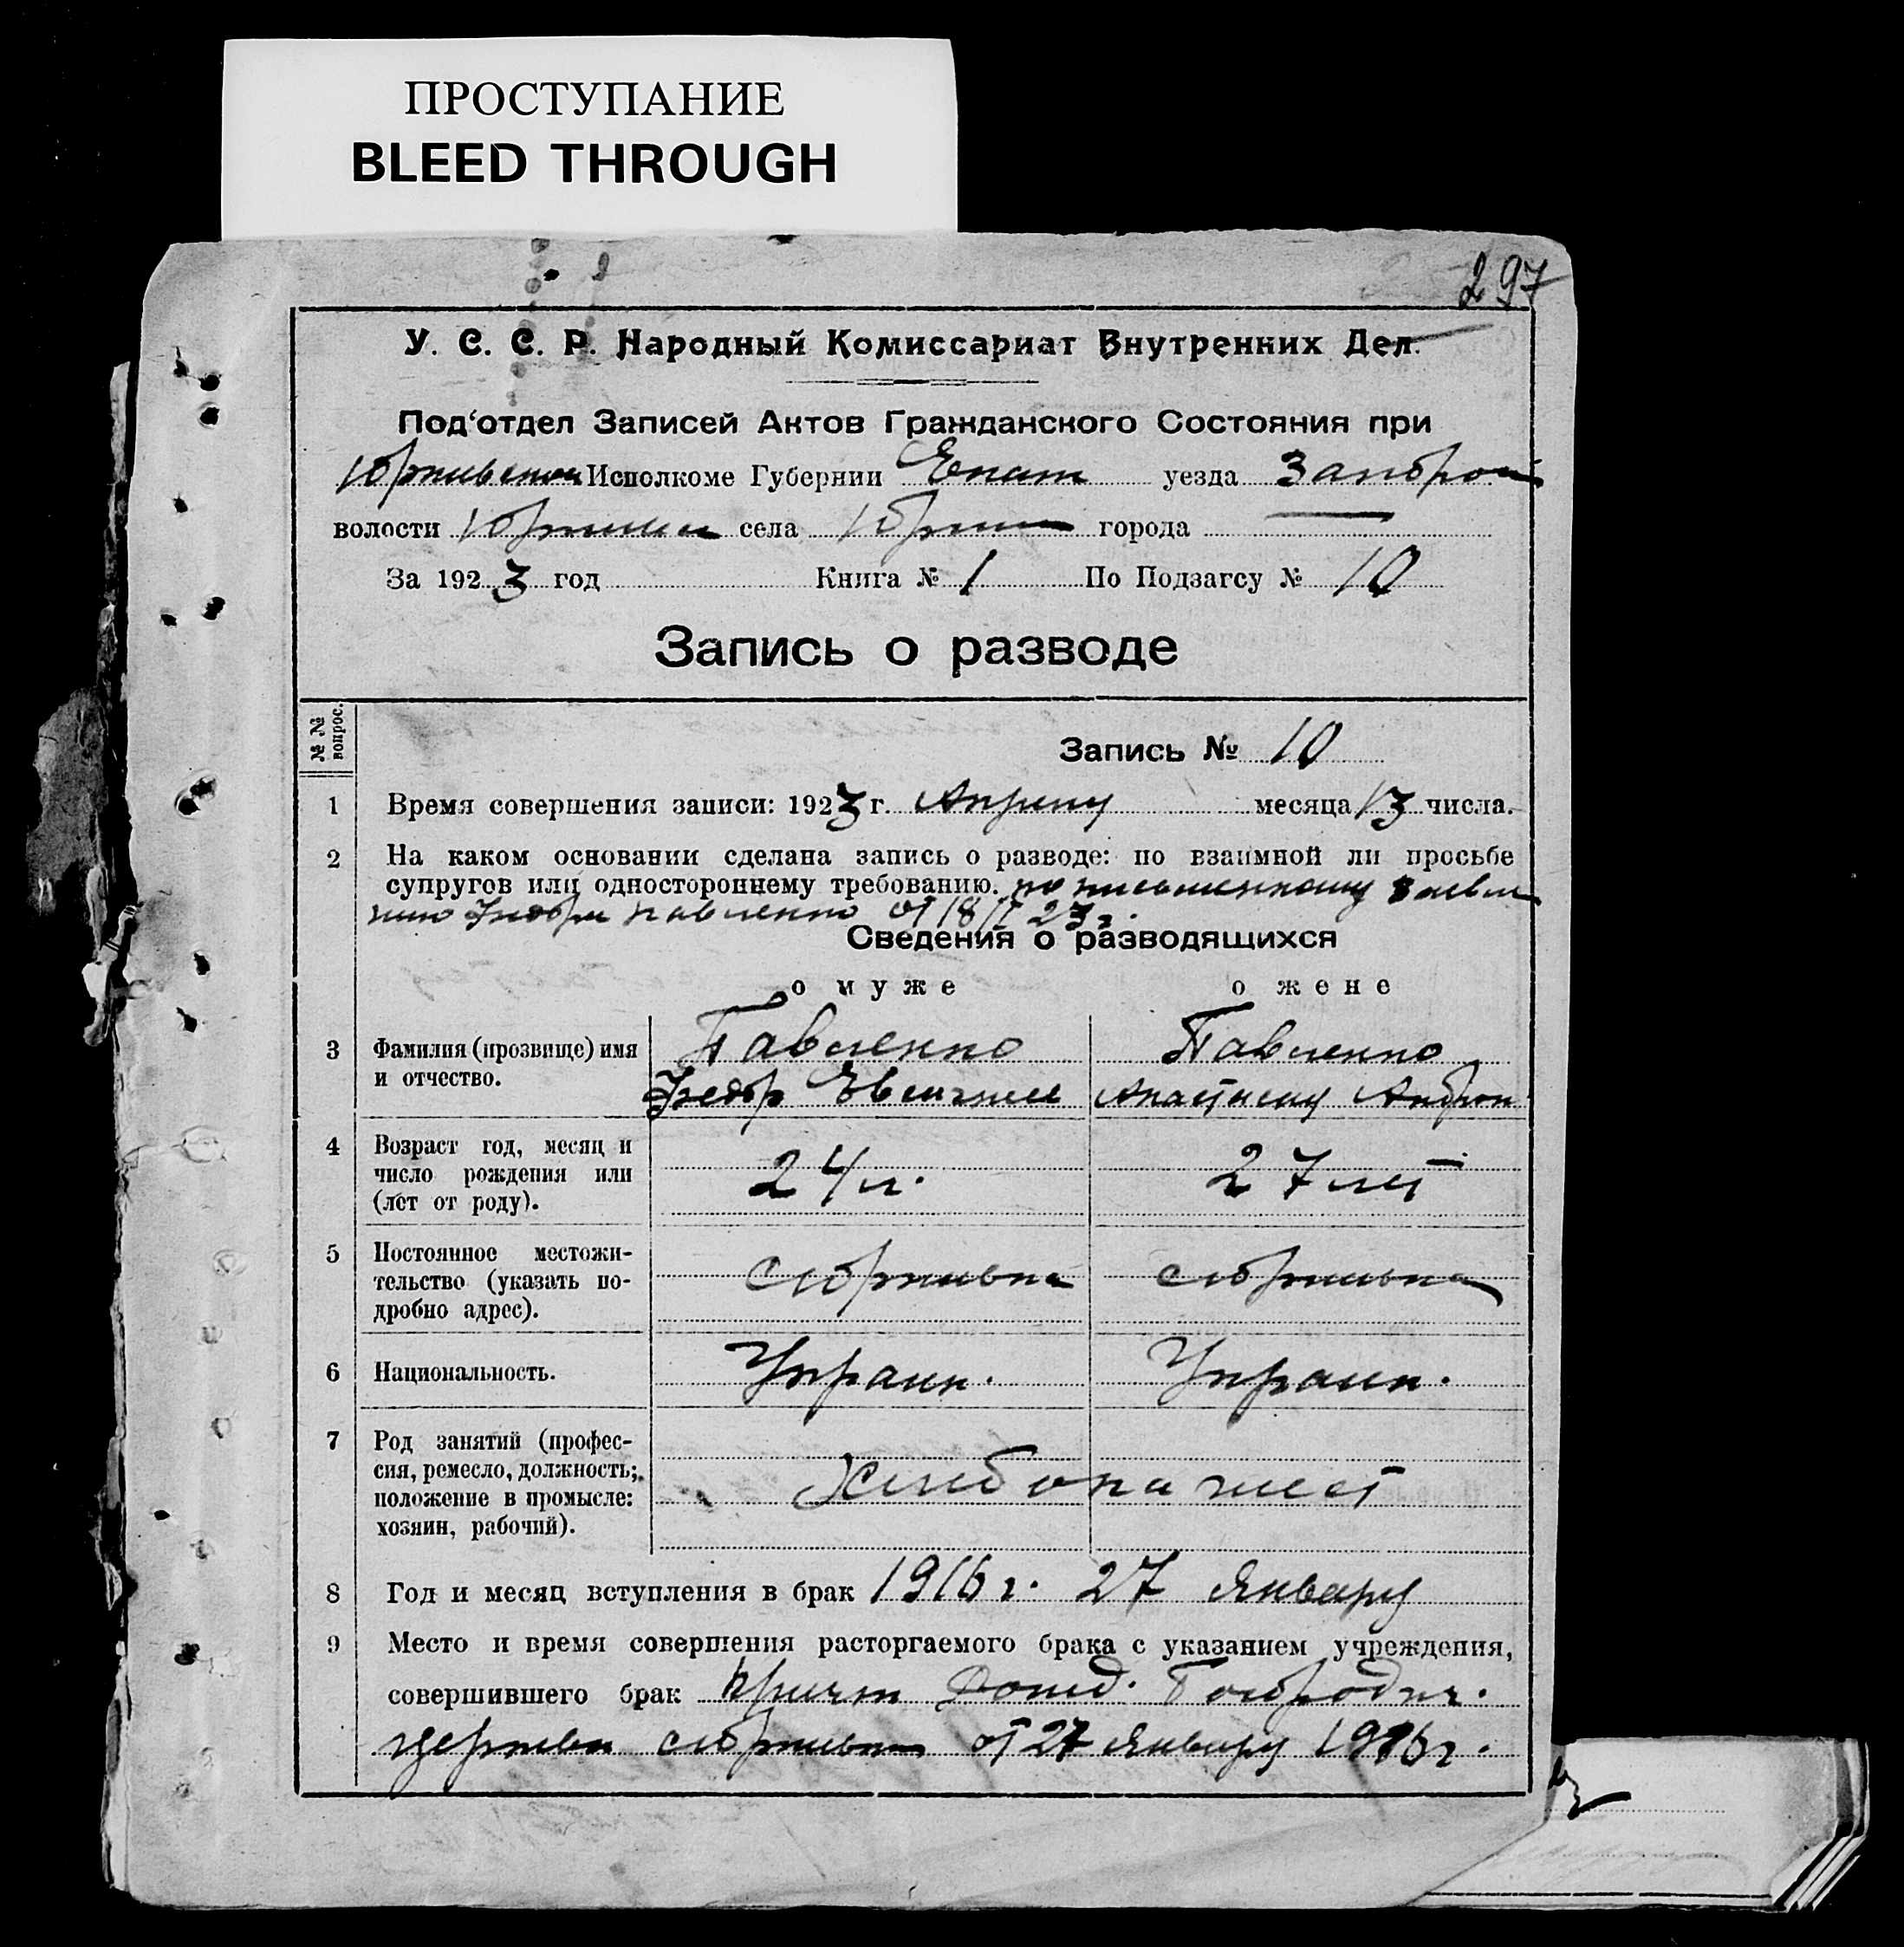 ПРОСТУПАНИЕ
BLEED THROUGH
297
У. С. С. Р. Народный Комиссариат Внутренних Дел.
Под‘отдел Записей Актов Гражданского Состояния при
Исполкоме Губернии Екат уезда
волости села города
За 1923 год Книга № 1 По Подзагсу № 10
Запись о разводе
№№ вопрос.
Запись № 10
1 Время совершения записи: 1923 г. Апреля месяца 13 числа.
2 На каком основании сделана запись о разводе: по взаимной ли просьбе
супругов или одностороннему требованию. по письменному заявле
нию Федора Павленко от 18/II 23 г.
Сведения о разводящихся
о муже о жене
3 Фамилия (прозвище) имя Павленко Павленко
и отчество. Федор Анастасия Андрон
4 Возраст год, месяц и
число рождения или 24 л. 27 лет
(лет от роду).
5 Постоянное местожи-
тельство (указать по-
дробно адрес).
6 Национальность. Украин. Украин.
7 Род занятий (профес-
сия, ремесло, должность;
положение в промысле: Хлебопашест
хозяин, рабочий).
8 Год и месяц вступления в брак 1916 г. 27 Января
9 Место и время совершения расторгаемого брака с указанием учреждения,
совершившего брак Причт Рожд. Богородич.
церкви от 27 Января 1916 г.